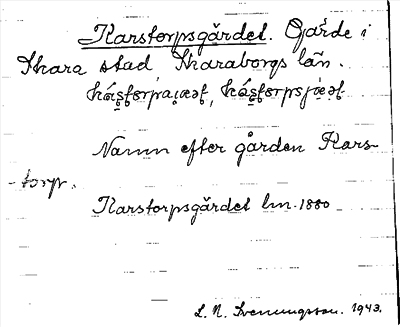 Karstorpsgärdet. Gärde i
Skara stad Skaraborgs län.
Namn efter gården Kars-
torp.
Karstorpsgärdet lm. 1880
L. N. Svenungsson. 1943.